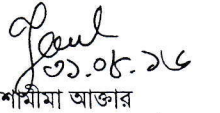 ৩১.০৮.১৬
শামীমা আক্তার